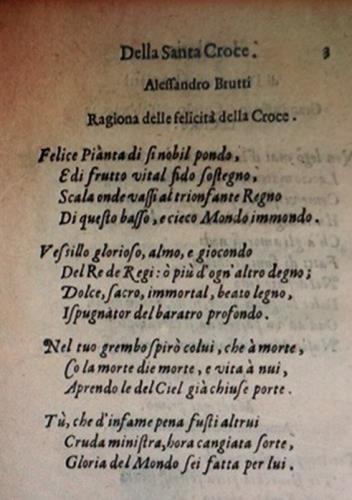 Della Santa Croce. 3
Alessandro Brutti
Ragiona delle felicità della Croce.
Felice Pianta di sì nobil pondo,
E di frutto vital fido sostegno,
Scala onde vassi al trionfante Regno
Di questo basso, e cieco Mondo immondo.
Vessillo glorioso, almo, e giocondo
Del Re de Regi: ò più d'ogn'altro degno;
Dolce, sacro, immortal, beato legno,
Ispugnàtor del baratro profondo.
Nel tuo grembo spirò colui, che à morte,
Co la morte die morte, e vita à nui,
Aprendo le del Ciel già chiuse porte.
Tù, che d'infame pena fusti altrui
Cruda ministra, hora cangiata sorte,
Gloria del Mondo sei fatta per lui.